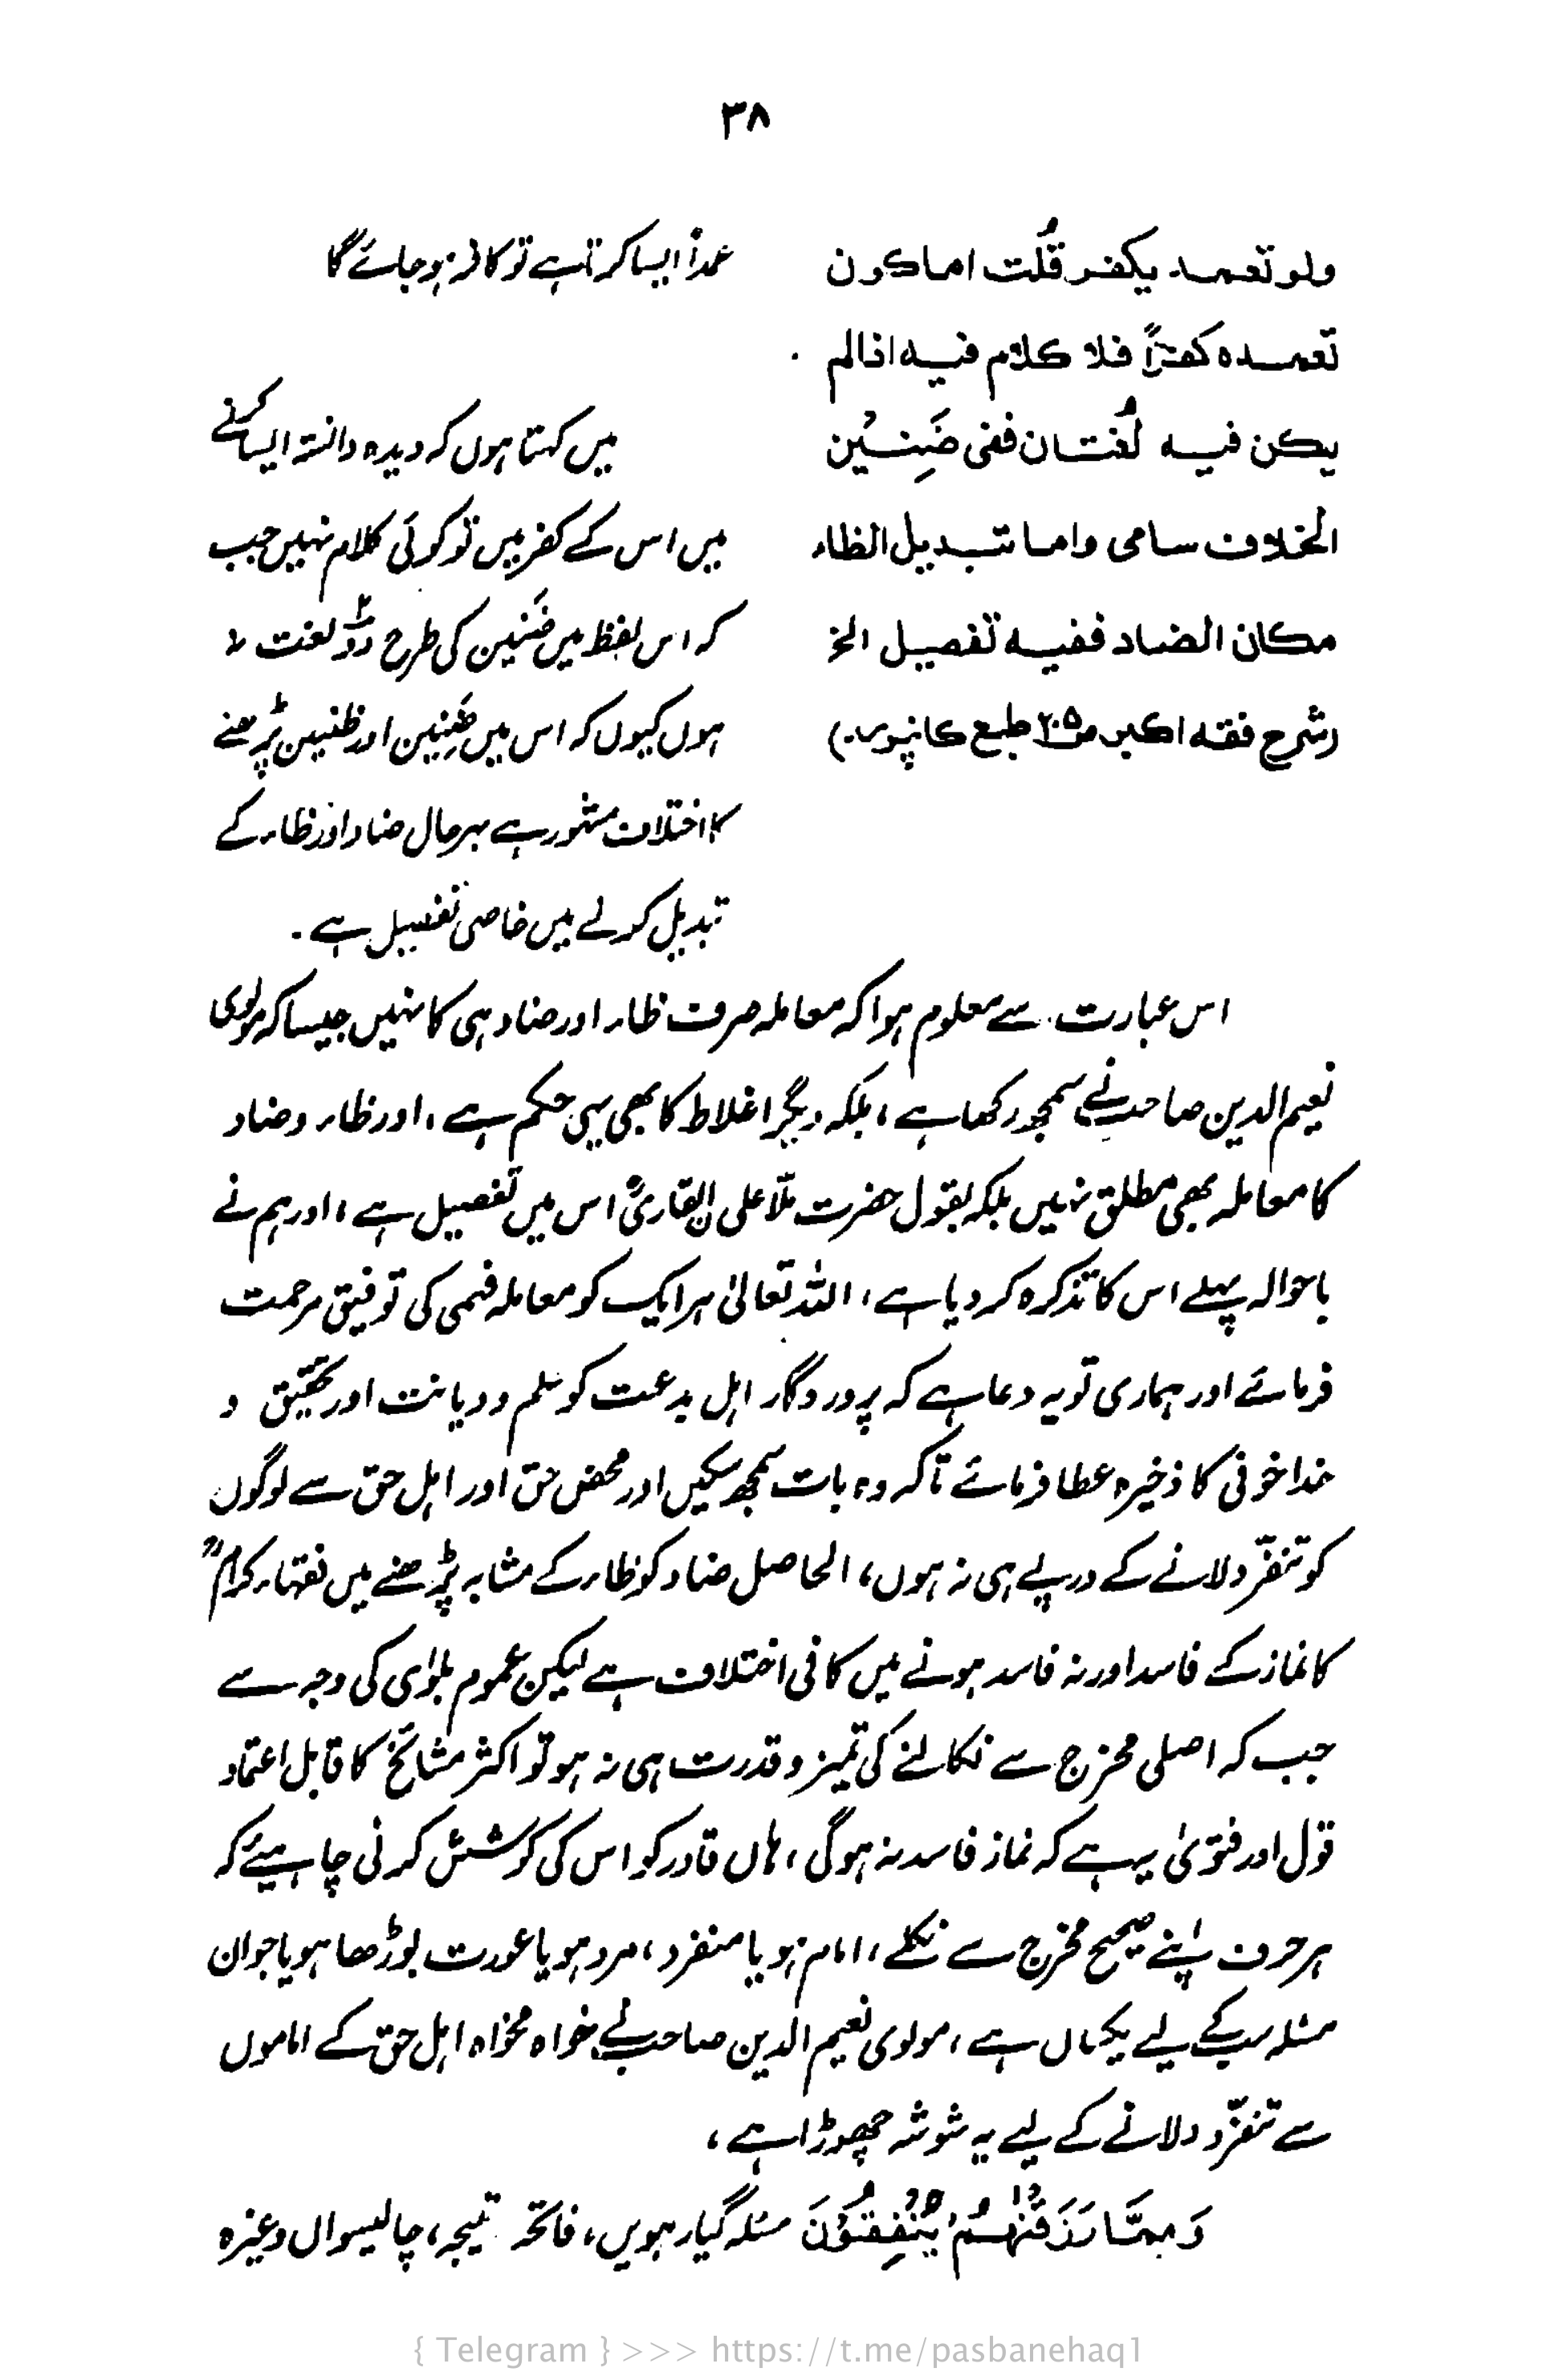 ۳۸
ولو تعمد يكفر قُلت اما كون
تعمده كفراً فلا كلام فيه اذا لم
يكن فيه لُغتان ففى ضَنِين
الخلاف سامى واما تبديل الظاء
مكان الضاد ففيه تفصيل الخ
(شرح فقه اكبر ص۲۰۵ طبع كانپور)
عمداً ایسا کرتا ہے تو کافر ہو جائے گا
میں کہتا ہوں کہ دیدہ دانستہ ایسا کرنے
میں اس کے کفر میں تو کوئی کلام نہیں جب
کہ اس لفظ میں ضَنِین کی طرح دوّ لغت نہ
ہوں کیوں کہ اس میں ضَنِین اور ظنین پڑھنے
کا اختلاف مشہور ہے بہرحال ضاد اور ظاء کے
تبدیل کرنے میں خاصی تفصیل ہے .
اس عبارت سے معلوم ہوا کہ معاملہ صرف ظاء اور ضاد ہی کا نہیں جیسا کہ مولوی
نعیم الدین صاحب نے سمجھ رکھا ہے ، بلکہ دیگر اغلاط کا بھی یہی حکم ہے ، اور ظاء و ضاد
کا معاملہ بھی مطلق نہیں بلکہ بقول حضرت ملّا علی القاریؒ اس میں تفصیل ہے ، اور ہم نے
باحوالہ پہلے اس کا تذکرہ کر دیا ہے ، اللہ تعالیٰ ہر ایک کو معاملہ فہمی کی توفیق مرحمت
فرمائے اور ہماری تو یہ دعا ہے کہ پروردگار اہل بدعت کو علم و دیانت اور تحقیق و
خدا خوفی کا ذخیرہ عطا فرمائے تاکہ وہ بات سمجھ سکیں اور محض حق اور اہل حق سے لوگوں
کو تنفّر دلانے کے درپے ہی نہ ہوں ، الحاصل ضاد کو ظاء کے مشابہ پڑھنے میں فقہاء کرامؒ
کا نماز کے فاسد اور نہ فاسد ہونے میں کافی اختلاف ہے لیکن عموم بلوٰی کی وجہ سے
جب کہ اصلی مخرج سے نکالنے کی تمیز و قدرت ہی نہ ہو تو اکثر مشائخ کا قابل اعتماد
قول اور فتویٰ یہ ہے کہ نماز فاسد نہ ہوگی ، ہاں قادر کو اس کی کوشش کرنی چاہیئے کہ
ہر حرف اپنے صحیح مخرج سے نکلے ، امام ہو یا منفرد ، مرد ہو یا عورت بوڑھا ہو یا جوان
مسئلہ سب کے لیے یکساں ہے ، مولوی نعیم الدین صاحب نے خواہ مخواہ اہل حق کے اماموں
سے تنفّر دلانے کے لیے یہ شوشہ چھوڑا ہے ،
وَمِمَّا رَزَقْنٰهُمْ يُنْفِقُوْنَ مسئلہ گیارہویں ، فاتحہ تیجہ ، چالیسواں وغیرہ
{ Telegram } >>> https://t.me/pasbanehaq1